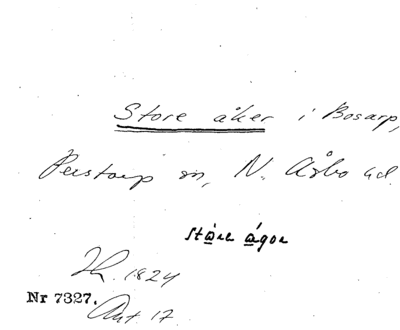 Store åker i Bosarp,
Perstorp sn, N. Åsbo hd.
ståre ågor
1824
Nr 7327.
Ant. 17